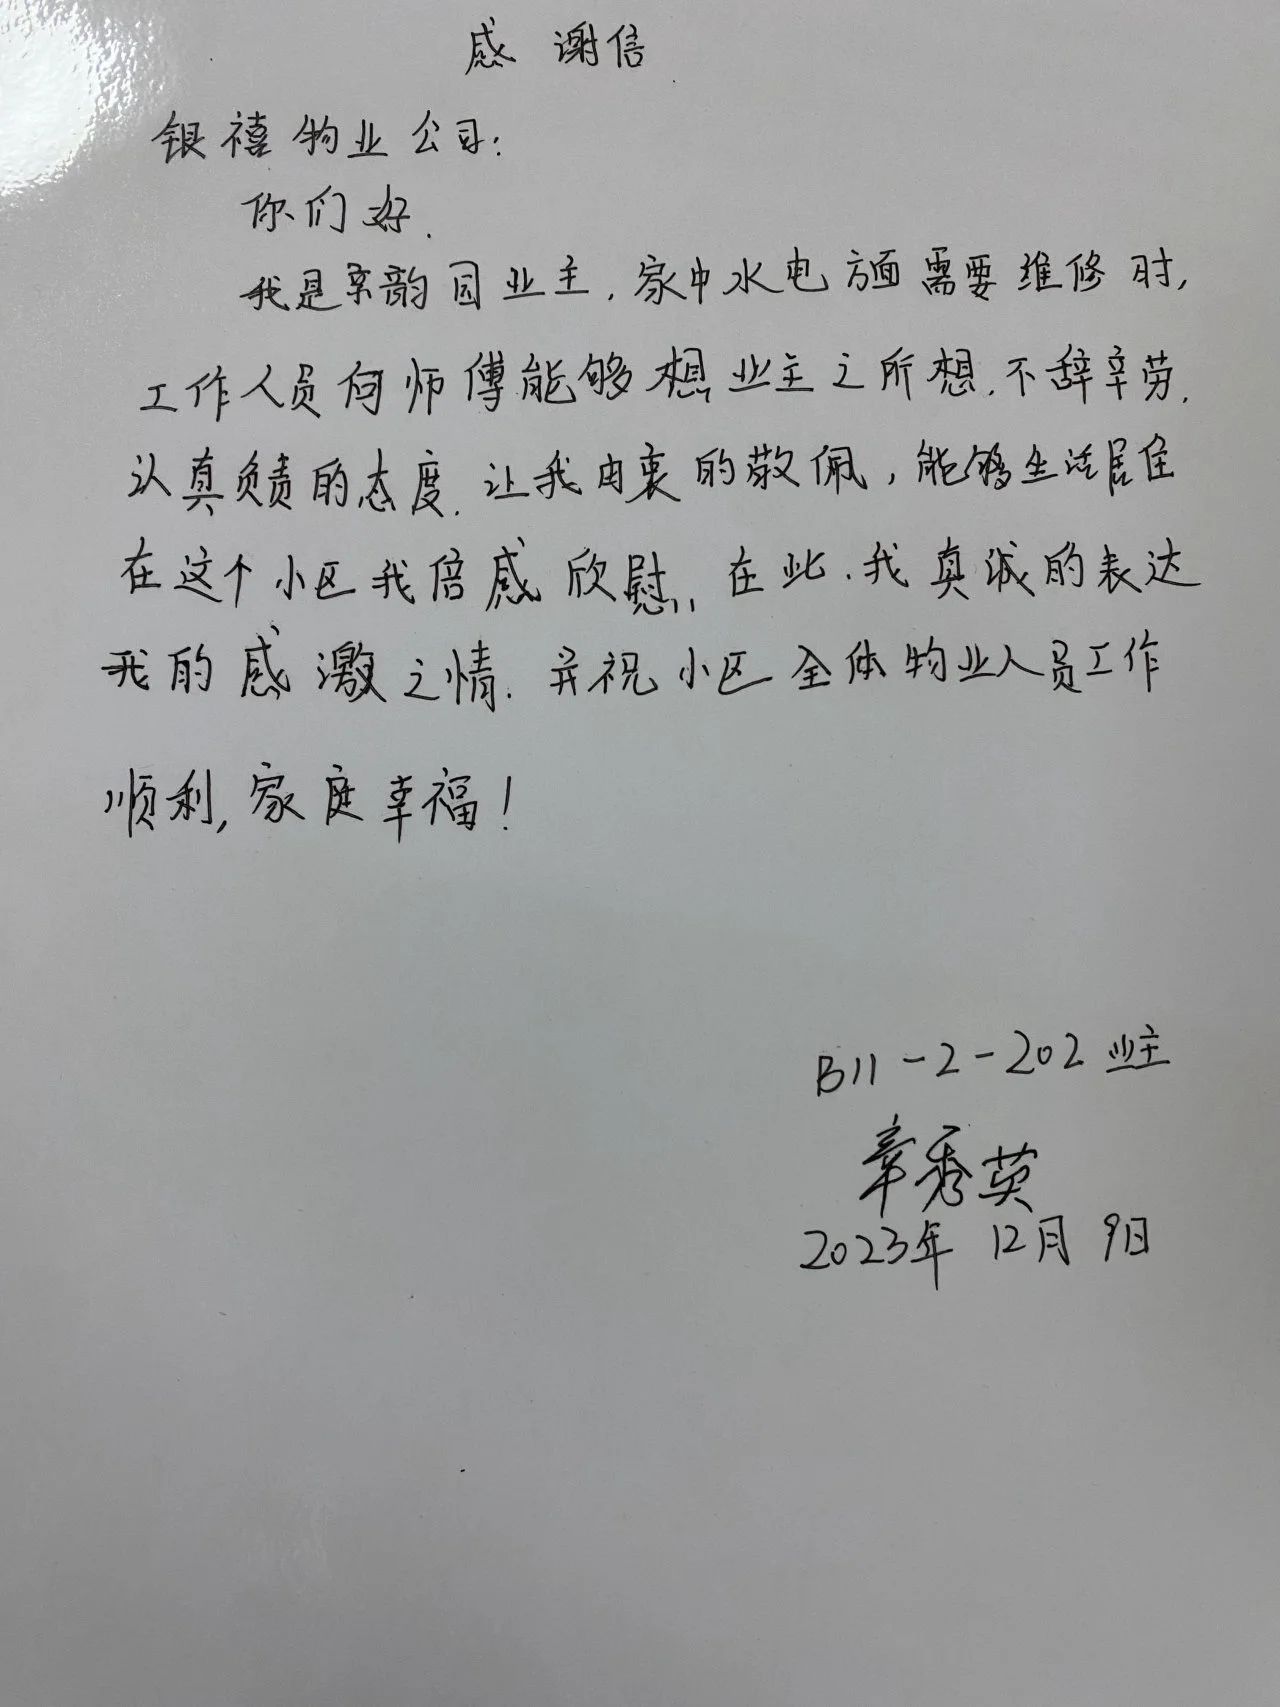 感谢信
银禧物业公司:
你们好.
我是京韵园业主.家中水电方面需要维修时,
工作人员何师傅能够想业主之所想.不辞辛劳.
认真负责的态度.让我由衷的敬佩,能够生活居住
在这个小区我倍感欣慰,,在此.我真诚的表达
我的感激之情.并祝小区全体物业人员工作
顺利,家庭幸福!
B11-2-202业主
章秀英
2023年12月9日